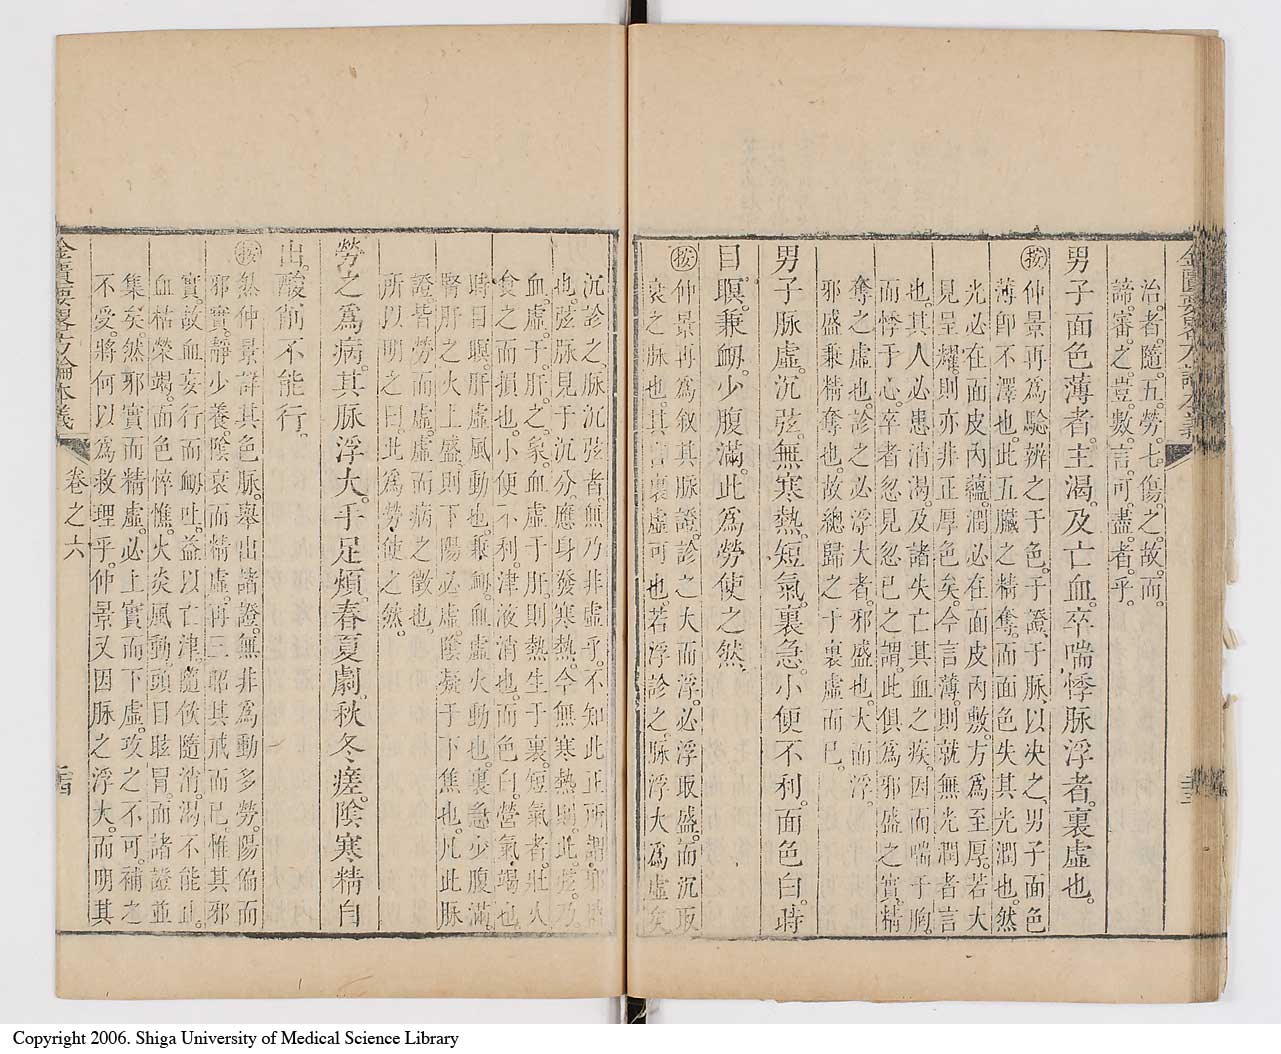 治者隨五勞七傷之故而
諦審之豈數言可盡者乎
男子面色薄者主渴及亡血卒喘悸脉浮者裏虛也
按仲景再爲驗辨之于色于證于脉以决之男子面色
薄卽不澤也此五臟之精奪而面色失其光潤也然
光必在面皮內蘊潤必在面皮內敷方爲至厚若大
見呈耀則亦非正厚色矣今言薄則就無光潤者言
也其人必患消渴及諸失亡其血之疾因而喘于胸
而悸于心卒者忽見忽已之謂此俱爲邪盛之實精
奪之虛也診之必浮大者邪盛也大而浮
邪盛乗精奪也故總歸之于裏虛而已
男子脉虛沉弦無寒熱短氣裏急小便不利面色白時
目瞑兼衂少腹滿此爲勞使之然
按仲景再爲叙其脉證診之大而浮必浮取盛而沉取
衰之脉也其裏虛可也若浮診之脉浮大爲虛矣
沉診之脉沉弦者無乃非虛乎不知此正所謂邪勝
也弦脉見于沉分應身發寒熱今無寒熱則此弦乃
血虛于肝之象血虛于肝則熱生于裏短氣者壯火
食之而損也小便不利津液消也面色白營氣竭也
時目瞑肝虛風動也兼衂血虛火動也裏急少腹滿
腎肝之火上盛則下陽必虛陰凝于下焦也凡此脉
證皆勞而虛虛而病之徵也
所以明之曰此爲勞使之然
勞之爲病其脉浮大手足煩春夏劇秋冬瘥陰寒精自
出酸削不能行
按然仲景詳其色脉舉出諸證無非爲動多勞陽偏而
邪實靜少養陰衰而精虛再三昭其戒而已惟其邪
實故血妄行而衂吐益以亡津隨飲隨消渴不能止
血枯榮竭面色悴憔火炎風動頭目眩冒而諸證並
集矣然邪實而精虛必上實而下虛攻之不可補之
不受將何以爲救理乎仲景又因脉之浮大而明其
金匱要畧方論本義
卷之六